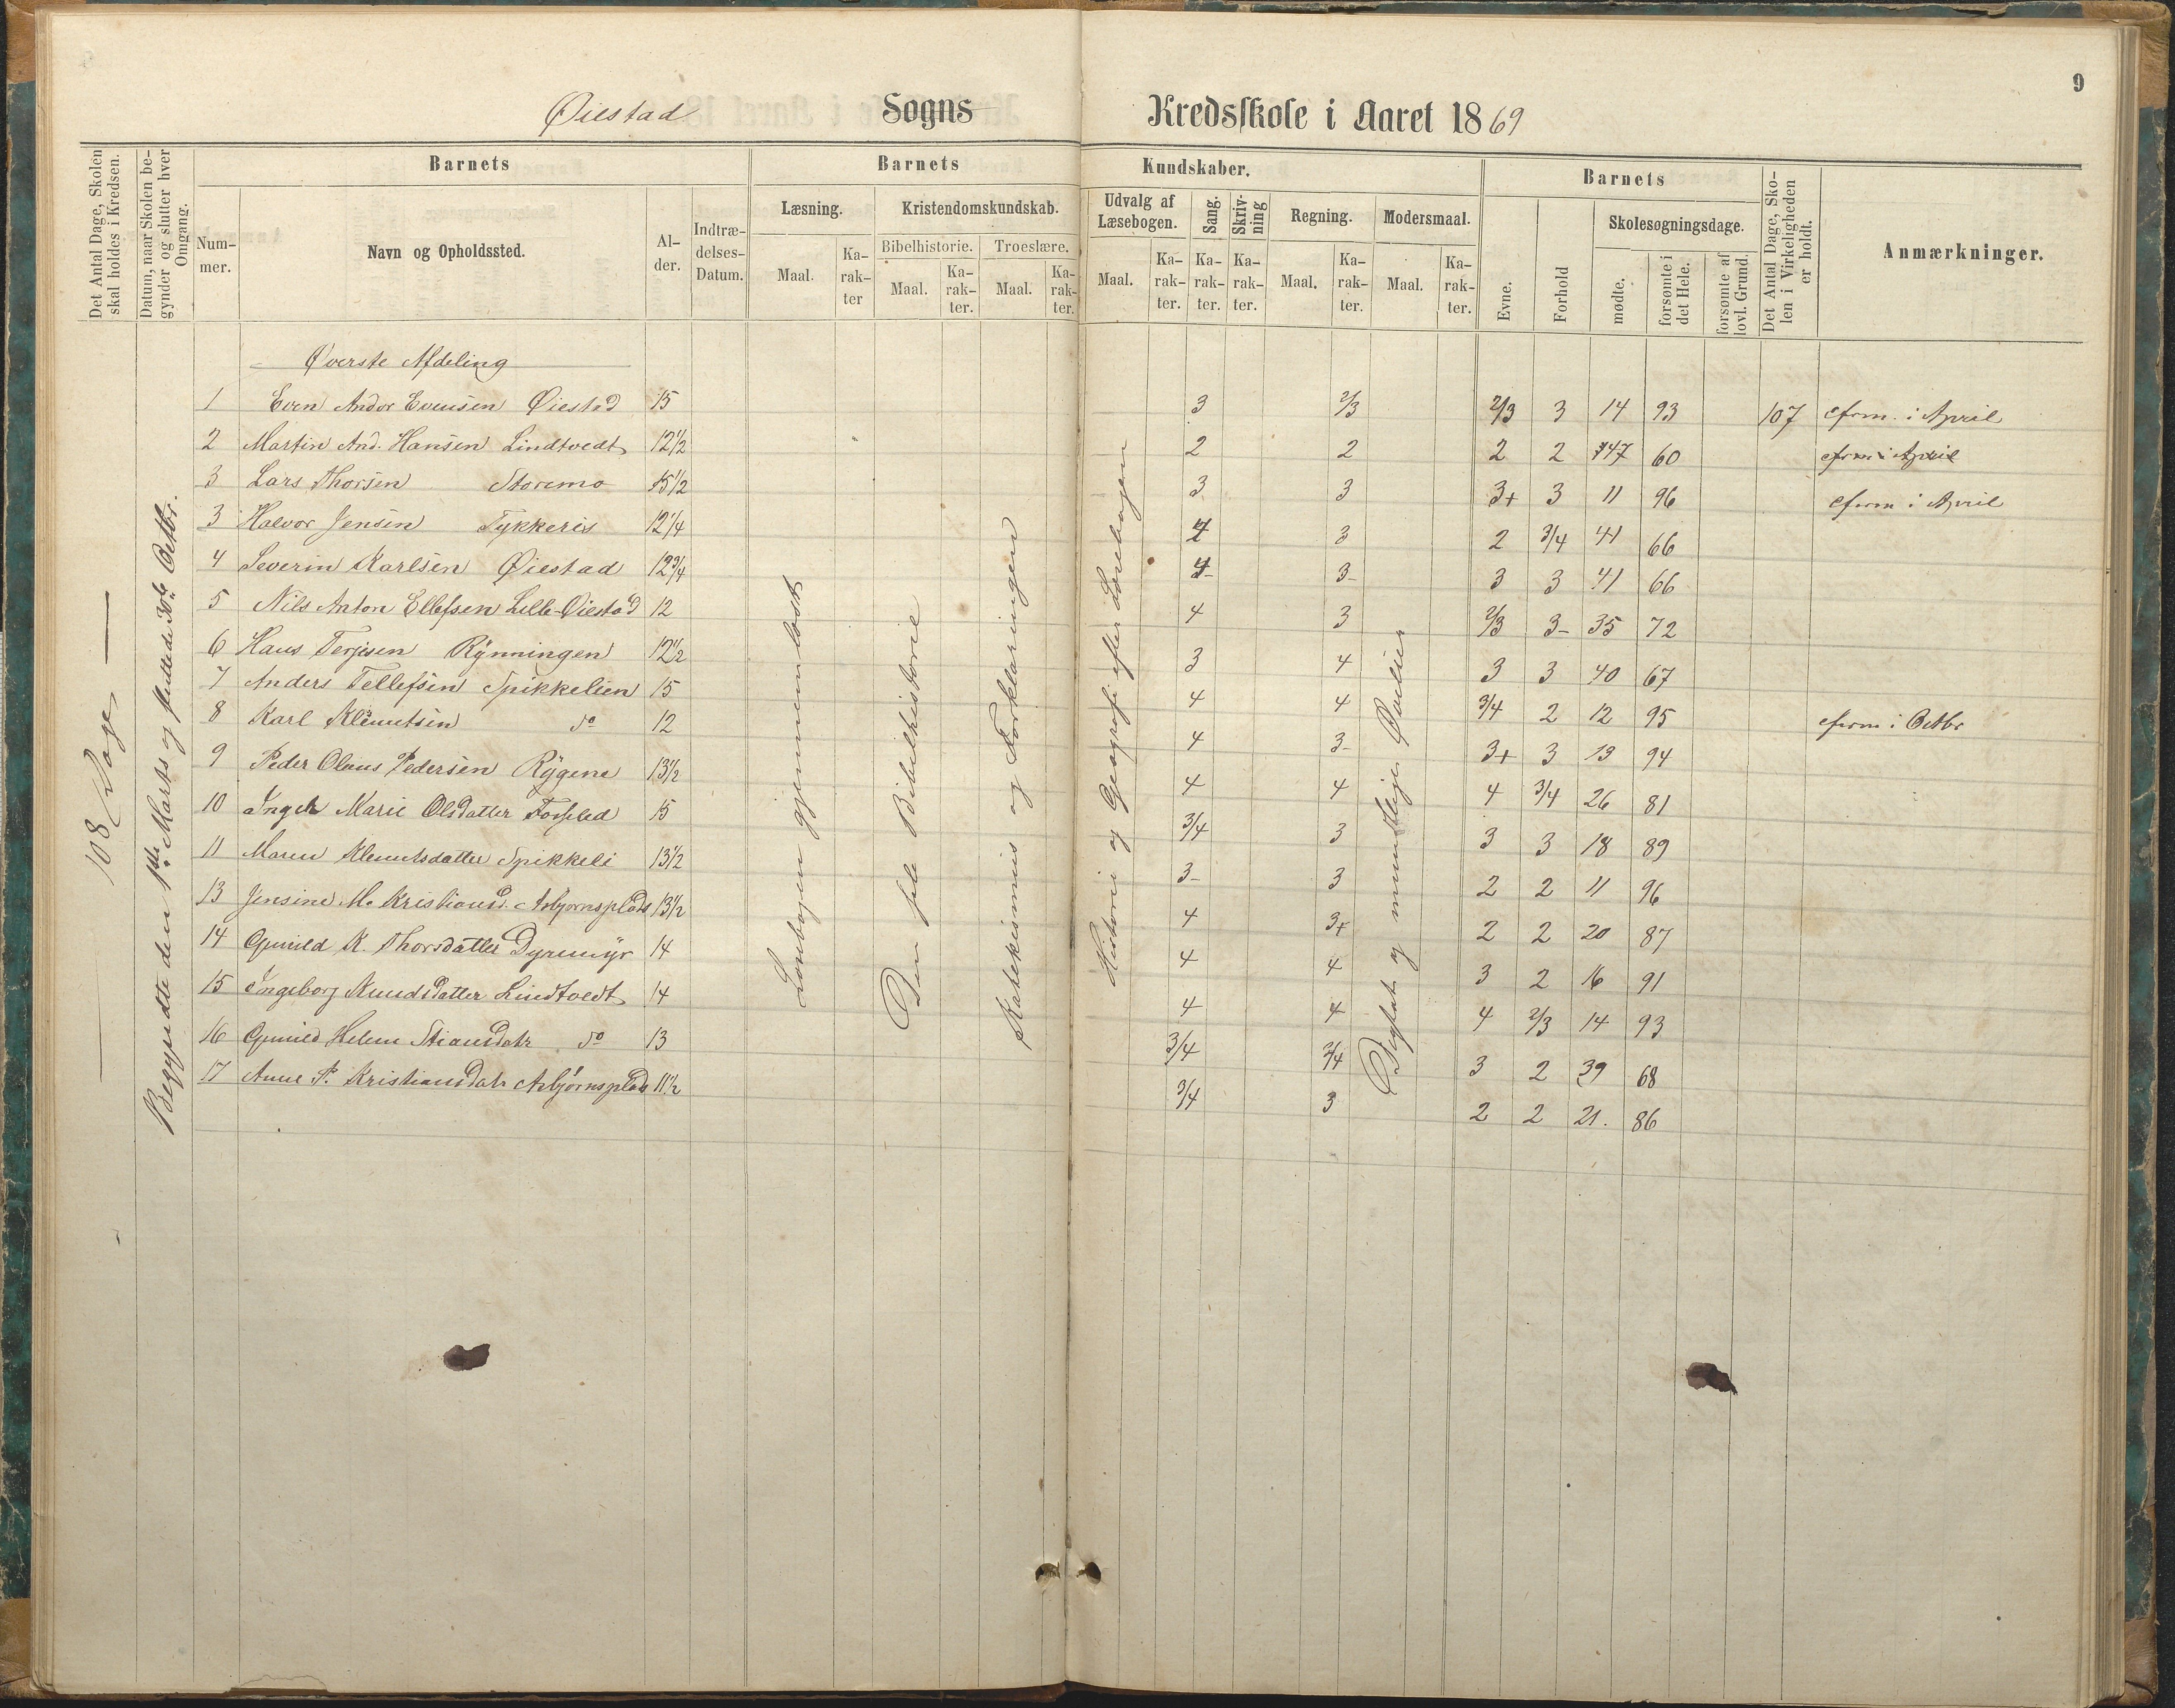 9
Øiestad Sogns Kredsskole i Aaret 1869
Det Antal Dage, Skolen skal holdes i Kredsen.
Datum, naar Skolen begynder og slutter hver Omgang.
Barnets
Nummer.
Navn og Opholdssted.
Alder.
Indtrædelses-Datum.
Barnets Kundskaber.
Læsning.
Maal.
Karakter
Kristendomskundskab.
Bibelhistorie.
Maal.
Karakter.
Troeslære.
Maal.
Karakter.
Udvalg af Læsebogen.
Maal.
Karakter.
Sang.
Karakter.
Skrivning
Karakter.
Regning.
Maal.
Karakter.
Modersmaal.
Maal.
Karakter.
Barnets
Evne.
Forhold
Skolesøgningsdage.
mødte.
forsømte i det Hele.
forsømte af lovl. Grund.
Det Antal Dage, Skolen i Virkeligheden er holdt.
Anmærkninger.
108 Dage
Begyndte den 1ste Marts og sluttede 30te Octbr.
Læsebogen gjennemlæst
Den hele Bibelhistorie
Katekismus og Forklaringen
Historie og Geografi efter Læsebogen
Digtat og mundtlige Øvelser
Øverste Afdeling
1 Even Andor Evensen Øiestad 15 3 2/3 2/3 3 14 93 107 cfrm. i April
2 Martin And. Hansen Lindtvedt 12 1/2 2 2 2 2 47 60 cfrm i April
3 Lars Thorsen Storemo 15 1/2 3 3 3+ 3 11 96 cfrm i April
3 Halvor Jensen Tykkeris 12 1/4 4 3 2 3/4 41 66
4 Severin Karlsen Øiestad 12 3/4 4- 3- 3 3 41 66
5 Nils Anton Ellefsen Lille-Øiestad 12 4 3 2/3 3- 35 72
6 Hans Terjesen Rynningen 12 1/2 3 4 3 3 40 67
7 Anders Tellefsen Spikkelien 15 4 4 3/4 2 12 95 cfrm i Octbr
8 Karl Klemetsen do 12 4 3- 3+ 3 13 94
9 Peder Olaus Pedersen Rygene 13 1/2 4 4 4 3/4 26 81
10 Inger Marie Olsdatter 15 3/4 3 3 3 18 89
11 Maren Klemetsdatter Spikkeli 13 1/2 3- 3 2 2 11 96
13 Jensine M. Kristiansd. Asbjørnsplads 13 1/2 4 3+ 2 2 20 87
14 Gunild K. Thorsdatter Dyremyr 14 4 4 3 2 16 91
15 Ingeborg Knudsdatter Lindtvedt 14 4 4 4 2/3 14 93
16 Gunild Helene Stiansdatr do 13 3/4 3/4 3 2 39 68
17 Anne P. Kristiansdatr Asbjørnsplads 11 1/2 3/4 3 2 2 21. 86